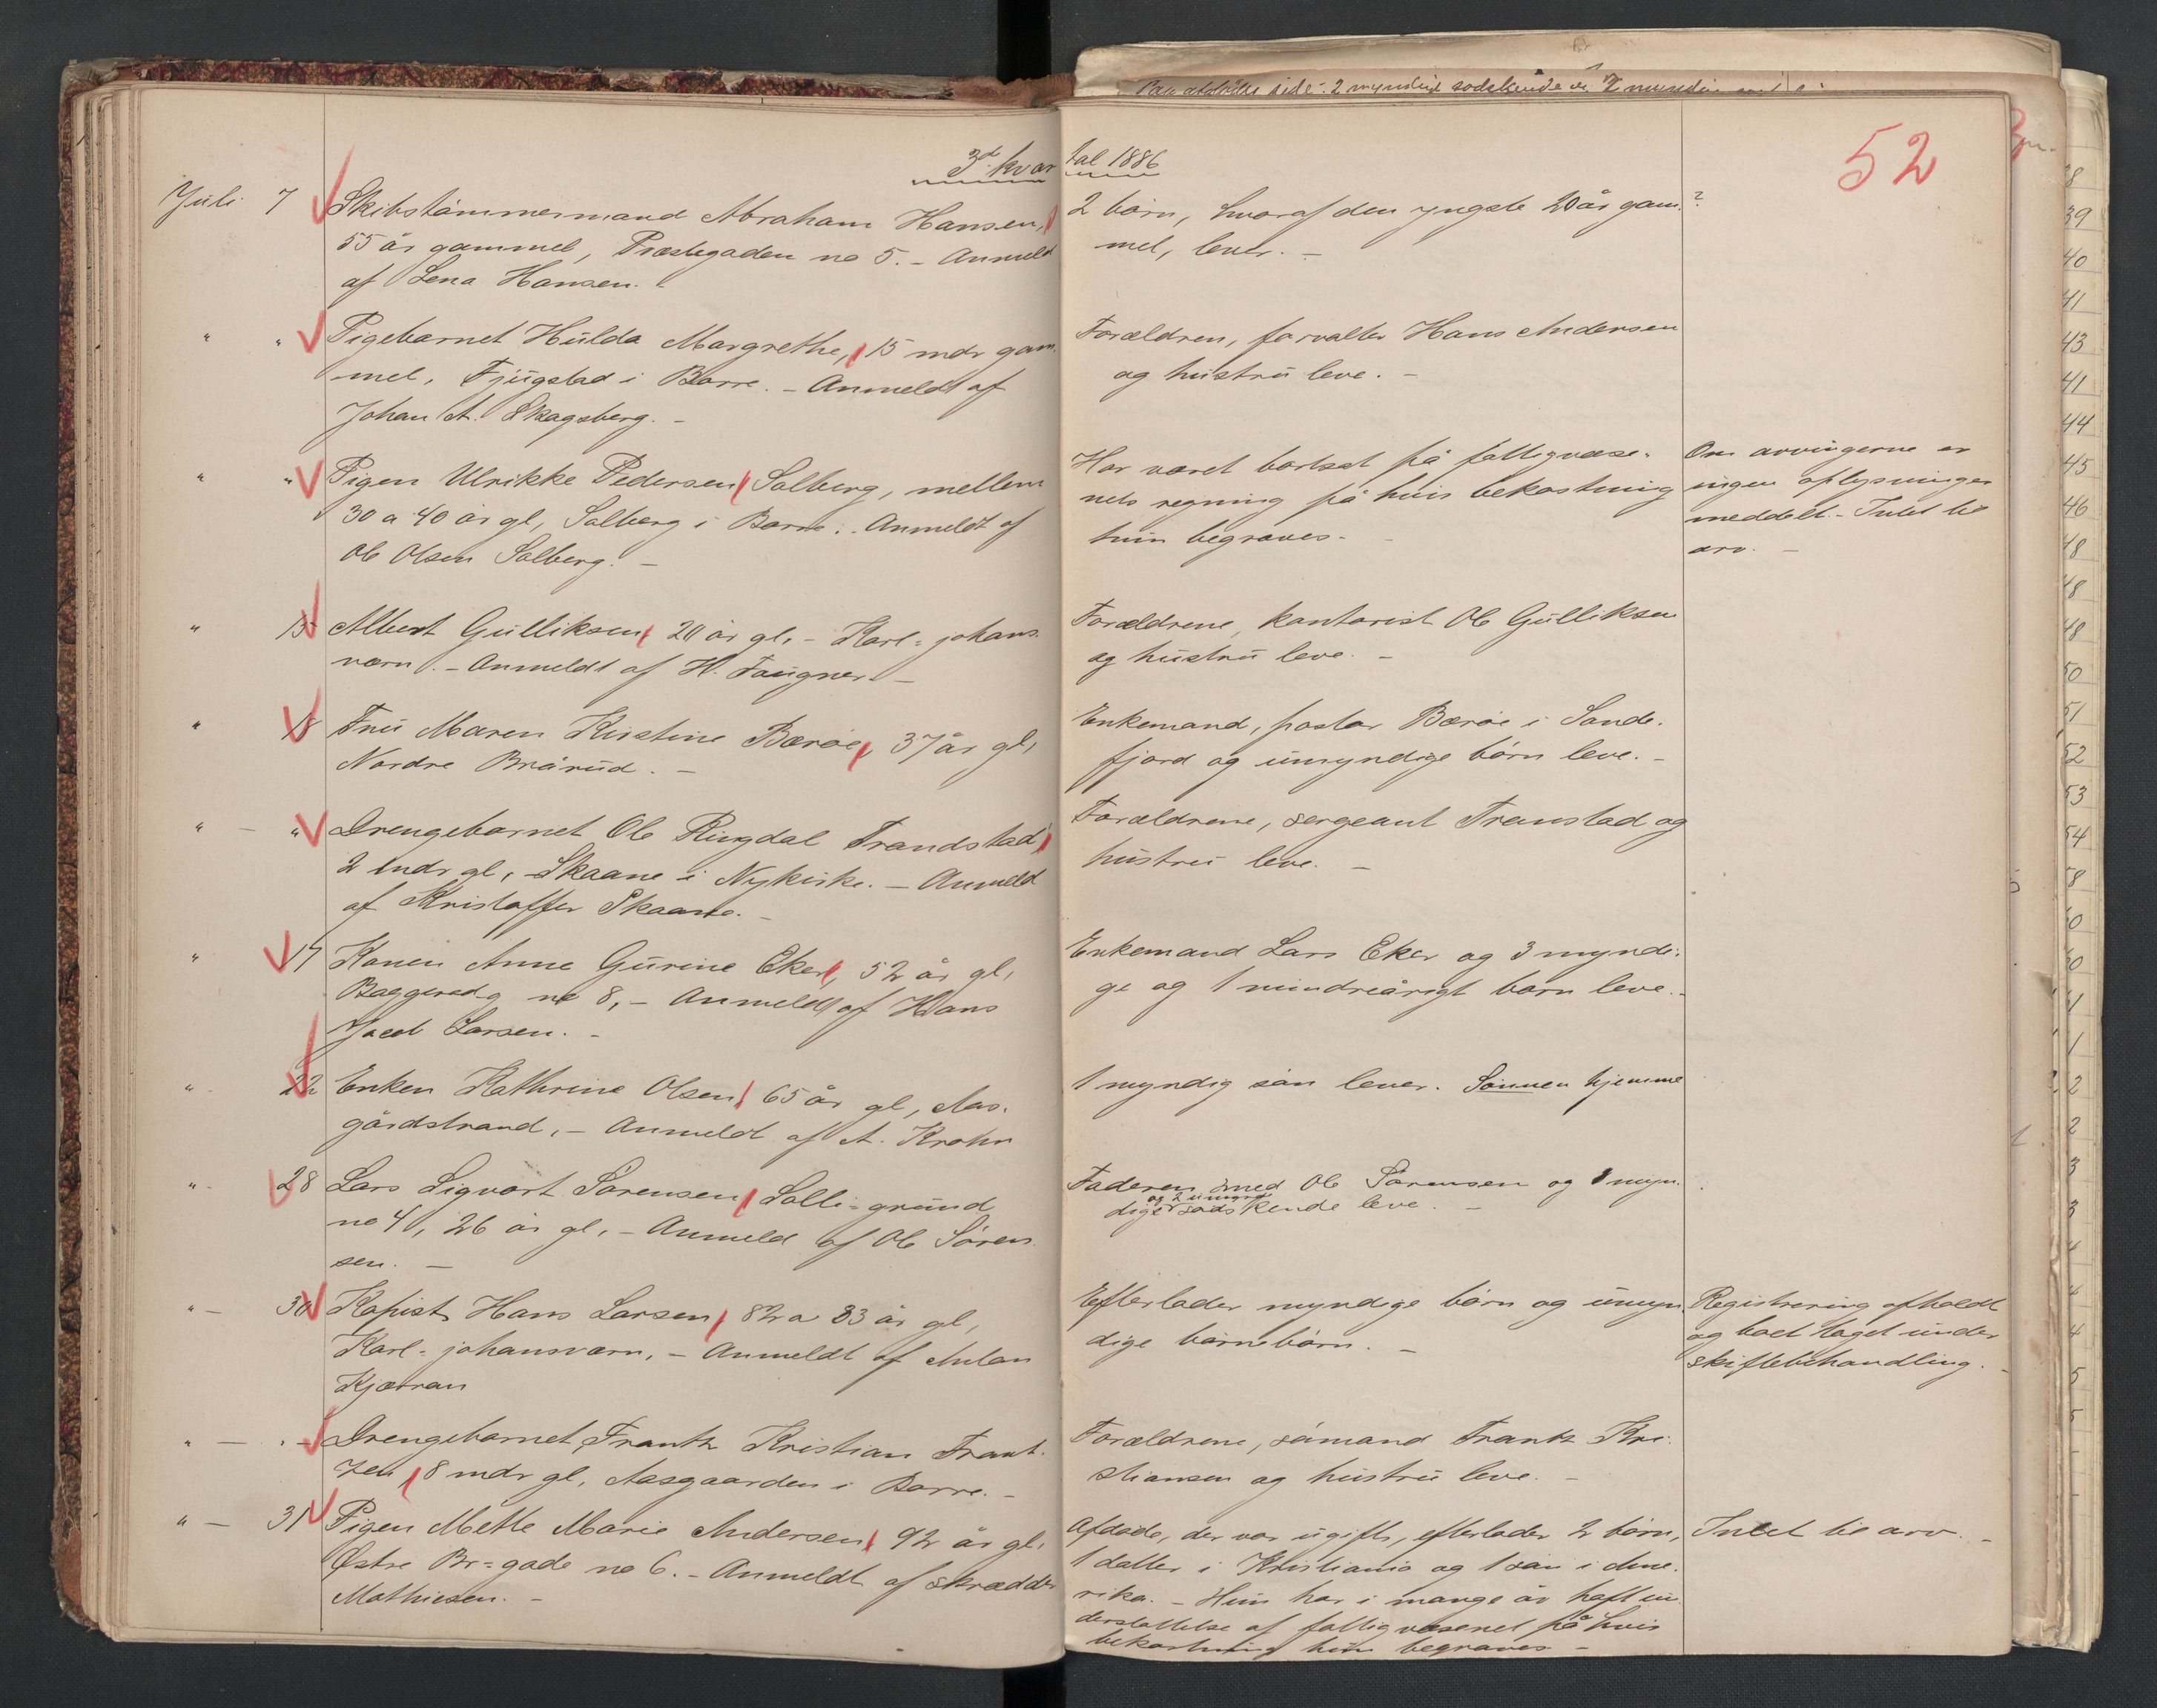 3d kvartal 1886
52
Juli 7 Skibstömmermand Abraham Hansen,
55 år gammel, Præstegaden no 5. - Anmeldt
af Lena Hansen. -
2 börn, hvoraf den yngste 20 år gam- ?
mel, lever. -
" " Pigebarnet Hulda Margrethe, 15 mdr gam-
mel, Fjugstad i Borre. - Anmeldt af
Johan A. Skagsberg. -
Forældren, forvalter Hans Andersen
og hustru leve. -
" " Pigen Ulrikke Pedersen Solberg, mellem
30 a 40 år gl, Solberg i Borre. - Anmeldt af
Ole Olsen Solberg. -
Har været bortsat på fattigvæse-
nets regning på hvis bekostning
hun begraves. -
Om arvingerne er
ingen oplysninger
meddelt. - Intet til
arv. -
" 15 Albert Gulliksen, 20 år gl, - Karl-johans-
værn. - Anmeldt af H. Faugner. -
Forældrene, kontorist Ole Gulliksen
og hustru leve. -
" 18 Fru Maren Kirstine Bærøe, 37 år gl,
Nordre Brårud. -
Enkemand, pastor Bærøe i Sande-
fjord og umyndige börn leve. -
" - " Drengebarnet Ole Ringdal Trandstad,
2 mdr gl, - Skaane i Nykirke. - Anmeldt
af Kristoffer Skaane. -
Forældrene, sergeant Transtad og
hustru leve. -
" 17 Konen Anne Gurine Eker, 52 år gl,
no 8, - Anmeldt af Hans
Jacob Larsen. -
Enkemand Lars Eker og 3 myndi-
ge og 1 mindreårigt barn leve. -
" 22 Enken Kathrine Olsen, 65 år gl, Aas-
gårdstrand, - Anmeldt af A. Krohn
1 myndig sön lever. Sönnen hjemme
" 28 Lars Sigvart Sörensen, Solli-grund
no 41, 26 år gl, - Anmeldt af Ole Sören-
sen. -
Faderen smed Ole Sörensen og 1 myn-
og 2 umynd
dige södskende leve. -
" - 30 Kopist Hans Larsen, 82 a 83 år gl,
Karl-johansværn, - Anmeldt af Anton
Kjærran
Efterlader myndige börn og umyn-
dige börnebörn. -
Registrering afholdt
og boet taget under
skiftebehandling. -
" - " - Drengebarnet Frantz Kristian Frant-
zen, 8 mdr gl, Aasgaarden i Borre. -
Forældrene, sömand Frantz Kri-
stiansen og hustru leve. -
" - 31 Pigen Mette Marie Andersen, 92 år gl,
Østre Br=gade no 6. - Anmeldt af skrædder
Mathiesen. -
Afdöde, der var ugift, efterlader 2 börn,
1 datter i Kristiania og 1 sön i Ame-
rika. - Hun har i mange år haft un-
derstöttelse af fattigvæsenet på hvis
bekostning hun begraves -
Intet til arv. -